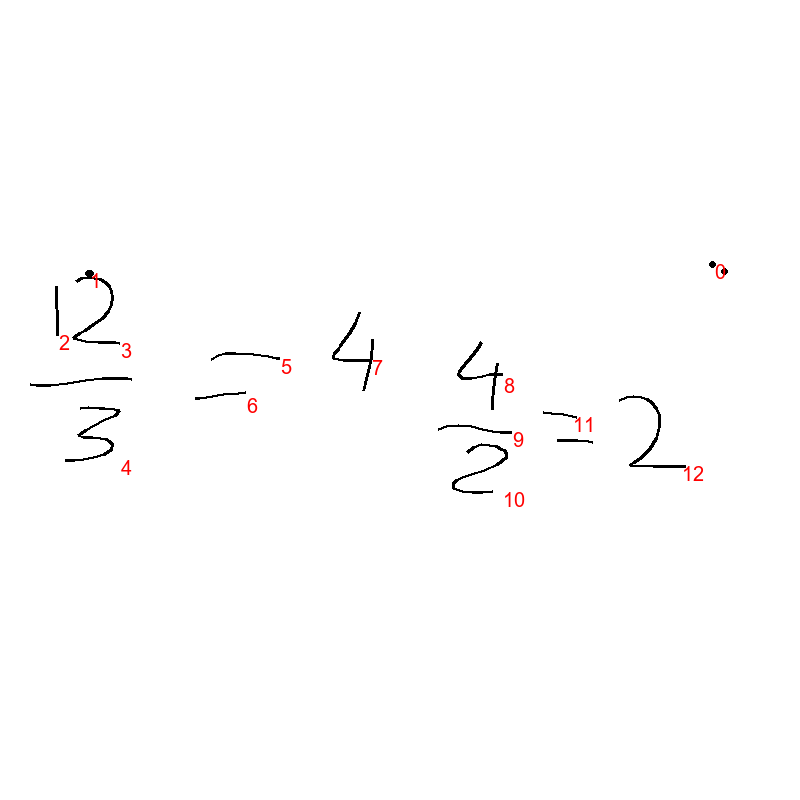 12/3 = 4
4/2 = 2
0
1
2
3
4
5
6
7
8
9
10
11
12